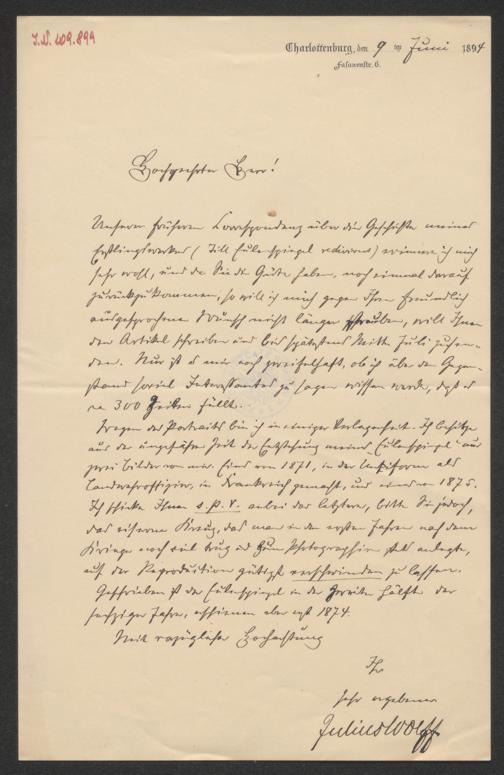 I.N. 109.899
Charlottenburg, den 9 ten Juni 1894
Fasanenstr. 6.
Hochgeehrter Herr!
Unserer früheren Correspondenz über die Geschichte meines
Erstlingswerkes (Till Eulenspiegel redivivus) erinnere ich mich
sehr wohl, und da Sie die Güte haben, noch einmal darauf
zurückzukommen, so will ich mich gegen Ihren freundlich
ausgesprochenen Wunsch nicht länger sträuben, will Ihnen
den Artikel schreiben und bis spätestens Mitte Juli zusen-
den. Nur ist es mir noch zweifelhaft, ob ich über den Gegen-
stand soviel Interessantes zu sagen wissen werde, daß es
ca 300 Zeilen füllt.
Wegen des Portraits bin ich in einiger Verlegenheit. Ich besitze
aus der ungefähren Zeit der Entstehung meines "Eulenspiegel" nur
zwei Bilder von mir. Eines von 1871, in der Uniform als
Landwehroffizier, in Frankreich gemacht, und eines von 1875.
Ich schicke Ihnen s. p. r. anbei das letztere, bitte Sie jedoch,
das eiserne Kreuz, das man in den ersten Jahren nach dem
Kriege noch viel trug und zum Photographiren stets anlegte,
auf der Reproduktion gütigst verschwinden zu lassen.
Geschrieben ist der Eulenspiegel in der zweiten Hälfte der
sechziger Jahre, erschienen aber erst 1874.
Mit vorzüglicher Hochachtung
Ihr
sehr ergebener
Julius Wolff.